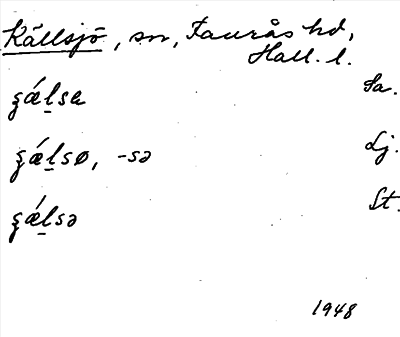 Källsjö, sn, Faurås hd,
Hall. l.
ʂǽl̠sɐ Sa.
ʂǽl̠sø, -sə Lj.
ʂǽl̠sə St.
1948